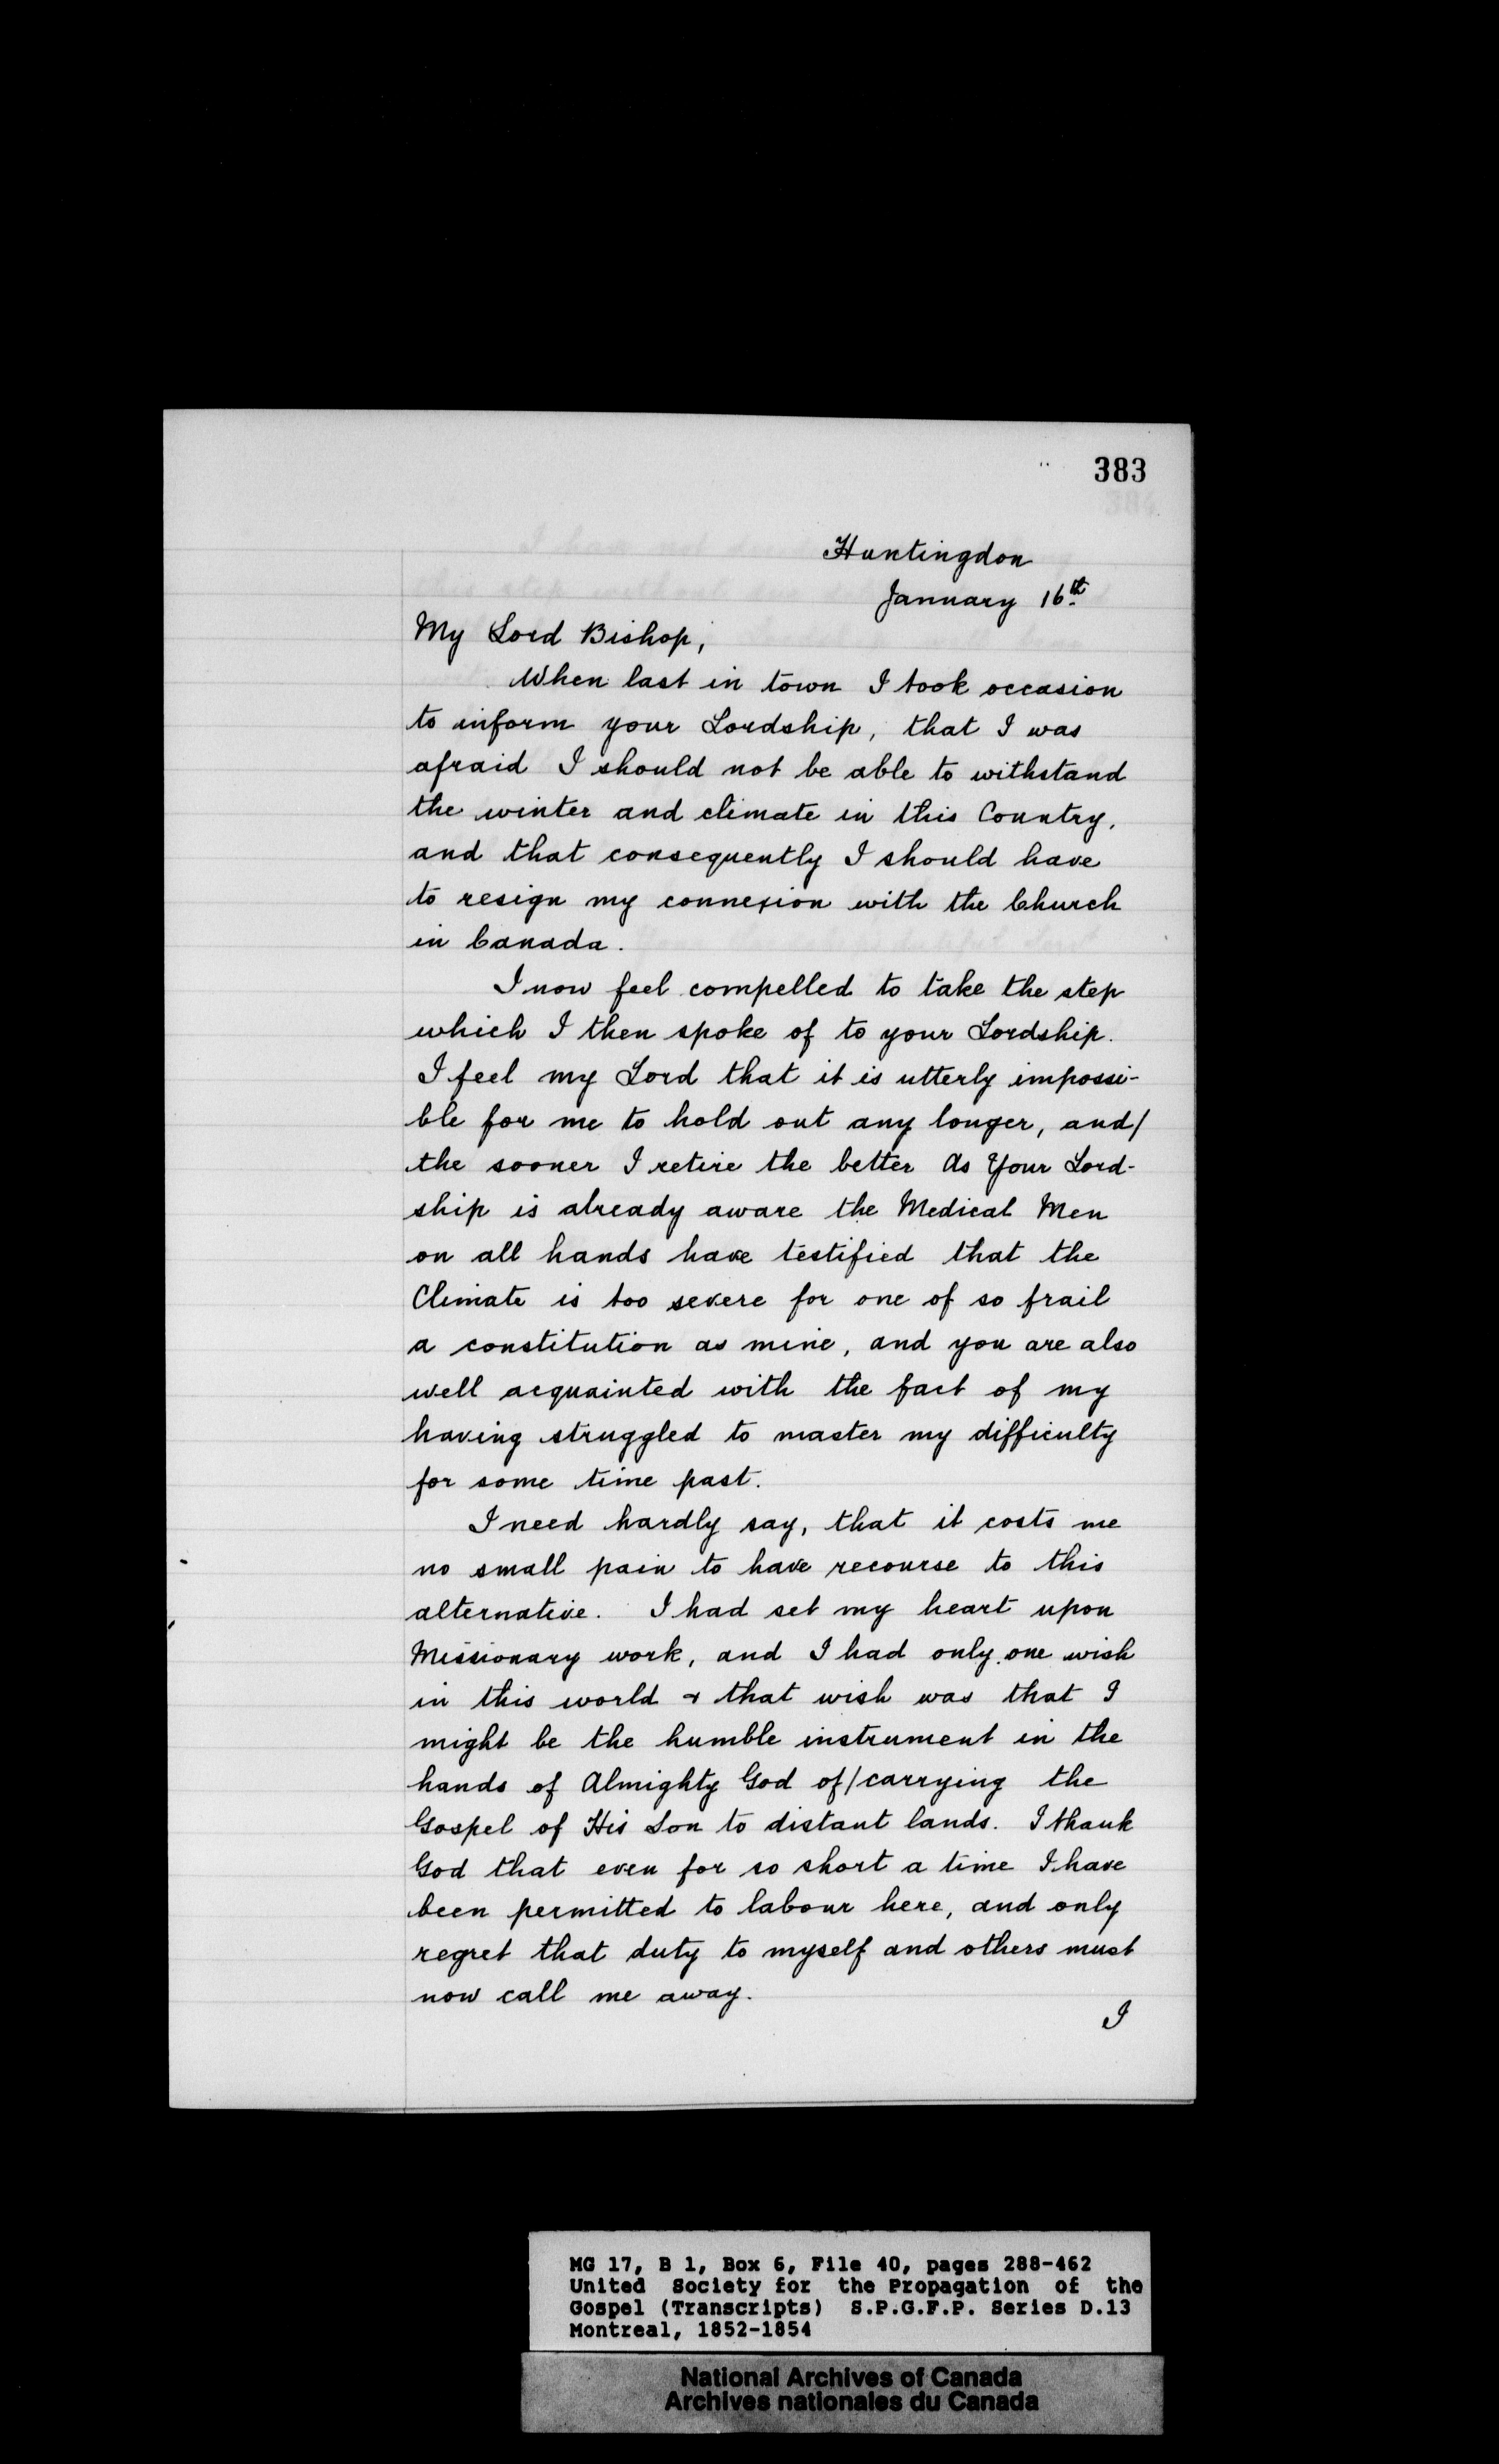 383
Huntingdon
January 16th
My Lord Bishop,
When last in town I took occasion
to inform your Lordship, that I was
afraid I should not be able to withstand
the winter and climate in this Country,
and that consequently I should have
to resign my connexion with the Church
in Canada.
I now feel compelled to take the step
which I then spoke of to your Lordship.
I feel my Lord that it is utterly impossi-
ble for me to hold out any longer, and/
the sooner I retire the better As Your Lord-
ship is already aware the Medical Men
on all hands have testified that the
Climate is too severe for one of so frail
a constitution as mine, and you are also
well acquainted with the fact of my
having struggled to master my difficulty
for some time past.
I need hardly say, that it costs me
no small pain to have recourse to this
alternative. I had set my heart upon
Missionary work, and I had only one wish
in this world & that wish was that I
might be the humble instrument in the
hands of Almighty God of/carrying the
Gospel of His Son to distant lands. I thank
God that even for so short a time I have
been permitted to labour here, and only
regret that duty to myself and others must
now call me away.
I
MG 17, B 1, Box 6, File 40, pages 288-462
United Society for the Propagation of the
Gospel (Transcripts) S.P.G.F.P. Series D.13
Montreal, 1852-1854
National Archives of Canada
Archives nationales du Canada